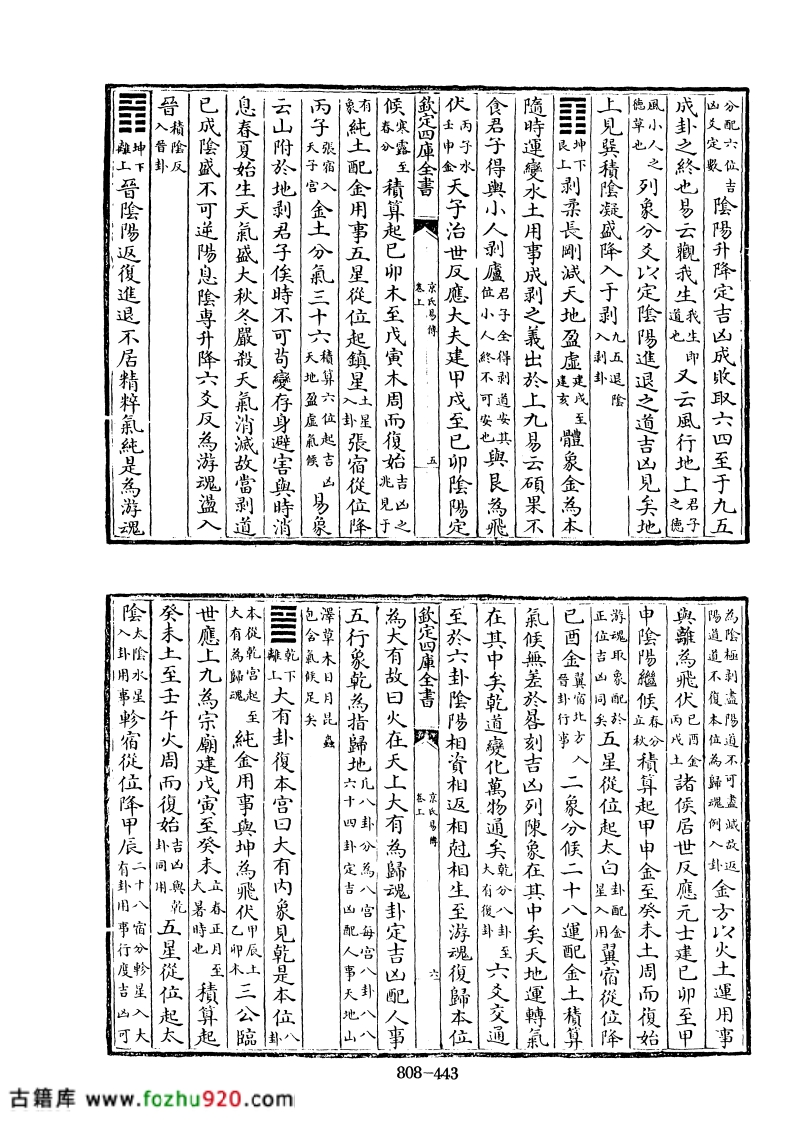 分配六位吉凶爻定數陰陽升降定吉凶成敗取六四至于九五
成卦之終也易云觀我生我生即道也又云風行地上君子之德
風小人之德草也列象分爻以定陰陽進退之道吉凶見矣地
上見巽積陰凝盛降入于剥九五退陰入剥卦
䷖坤下艮上剥柔長剛減天地盈虛建戌至建亥體象金為本
隨時運變水土用事成剥之義出於上九易云碩果不
食君子得輿小人剥廬君子全得剥道安其位小人終不可安也與艮為飛
伏丙子水壬申金天子治世反應大夫建甲戌至己卯陰陽定
欽定四庫全書
京氏易傳
卷上
五
候寒露至春分積算起己卯木至戊寅木周而復始吉凶之兆見于
有象純土配金用事五星從位起鎮星土星入卦張宿從位降
丙子張宿入天子宮金土分氣三十六積算六位起吉凶天地盈虛氣候易象
云山附於地剥君子俟時不可茍變存身避害與時消
息春夏始生天氣盛大秋冬嚴殺天氣消滅故當剥道
已成陰盛不可逆陽息陰專升降六爻反為游魂盪入
晉積陰反入晉卦
䷢坤下離上晉陰陽返復進退不居精粹氣純是為游魂
為陰極剥盡陽道不可盡滅故返陽道道不復本位為歸魂例入卦金方以火土運用事
與離為飛伏己酉金丙戌土諸侯居世反應元士建己卯至甲
申陰陽繼候春分立秋積算起甲申金至癸未土周而復始
游魂取象配於正位吉凶同矣五星從位起太白卦配金星入用翼宿從位降
己酉金翼宿北方入晉卦行事二象分候二十八運配金土積算
氣候無差於晷刻吉凶列陳象在其中矣天地運轉氣
在其中矣乾道變化萬物通矣乾分八卦至大有復卦六爻交通
至於六卦陰陽相資相返相尅相生至游魂復歸本位
欽定四庫全書
京氏易傳
卷上
六
為大有故曰火在天上大有為歸魂卦定吉凶配人事
五行象乾為指歸地凡八卦分為八宮每宮八卦八八六十四卦定吉凶配人事天地山
澤草木日月昆蟲包含氣候足矣
䷍乾下離上大有卦復本宮曰大有内象見乾是本位八卦
本從乾宮起至大有為歸魂純金用事與坤為飛伏甲辰土乙卯木三公臨
世應上九為宗廟建戊寅至癸未立春正月至大暑時也積算起
癸未土至壬午火周而復始吉凶與乾卦同用五星從位起太
陰太陰水星入卦用事軫宿從位降甲辰二十八宿分軫星入大有卦用事行度吉凶可
808-443
古籍库 www.fozhu920.com